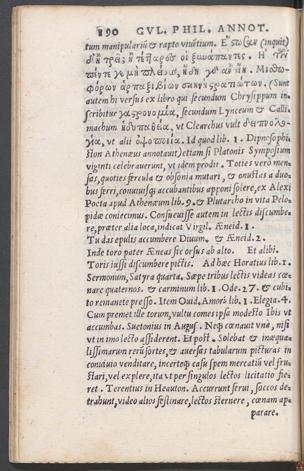 190 GVL. PHIL. ANNOT.
tum manipulariū & rapto viuētium. (inquit)
autem hi versus ex libro qui secundum Chrysippum in-
scribitur secundum Lynceum & Calli
machum vt Clearchus vult
vt alii Id quod lib. 1. Dipnosophi
ston Athenæus annotauit) etiam si Platonis Symposium
viginti celebrauerunt, vt idem prodit. Toties vero men-
sas, quoties fercula & obsonia mutari, & onustas a duo-
bus ferri, conuiuisq; accubantibus apponi solere, ex Alexi
Poeta apud Athenæum lib. 9. & Plutarcho in vita Pelo-
pidæ coniecimus. Consueuisse autem in lectis discumbe-
re, præter alia loca, indicat Virgil. Æneid. 1.
Tu das epulis accumbere Diuum, & Æneid. 2.
Inde toro pater Æneas sic orsus ab alto. Et alibi.
Toris iussi discumbere pictis. Ad hæc Horatius lib. 1.
Sermonum, Satyra quarta. Sæpe tribus lectis videas cœ-
nare quaternos. & carminum lib. 1. Ode. 27. & cubi-
to remanete presso. Item Ouid. Amorū lib. 1. Elegia. 4.
Cum premet ille torum, vultu comes ipsa modesto Ibis vt
accumbas. Suetonius in Augus. Neq; cœnauit vnà, nisi
vt in imo lecto assiderent. Et post. Solebat & inæqua
lissimarum rerū sortes, & auersas tabularum picturas in
conuiuio venditare, incertoq; casu spem mercatiū vel fru-
stari, vel explere, ita vt per singulos lectos licitatio fie-
ret. Terentius in Heauton. Accurrunt serui, soccos de-
trahunt, video alios festinare, lectos sternere, cœnam ap-
parare.